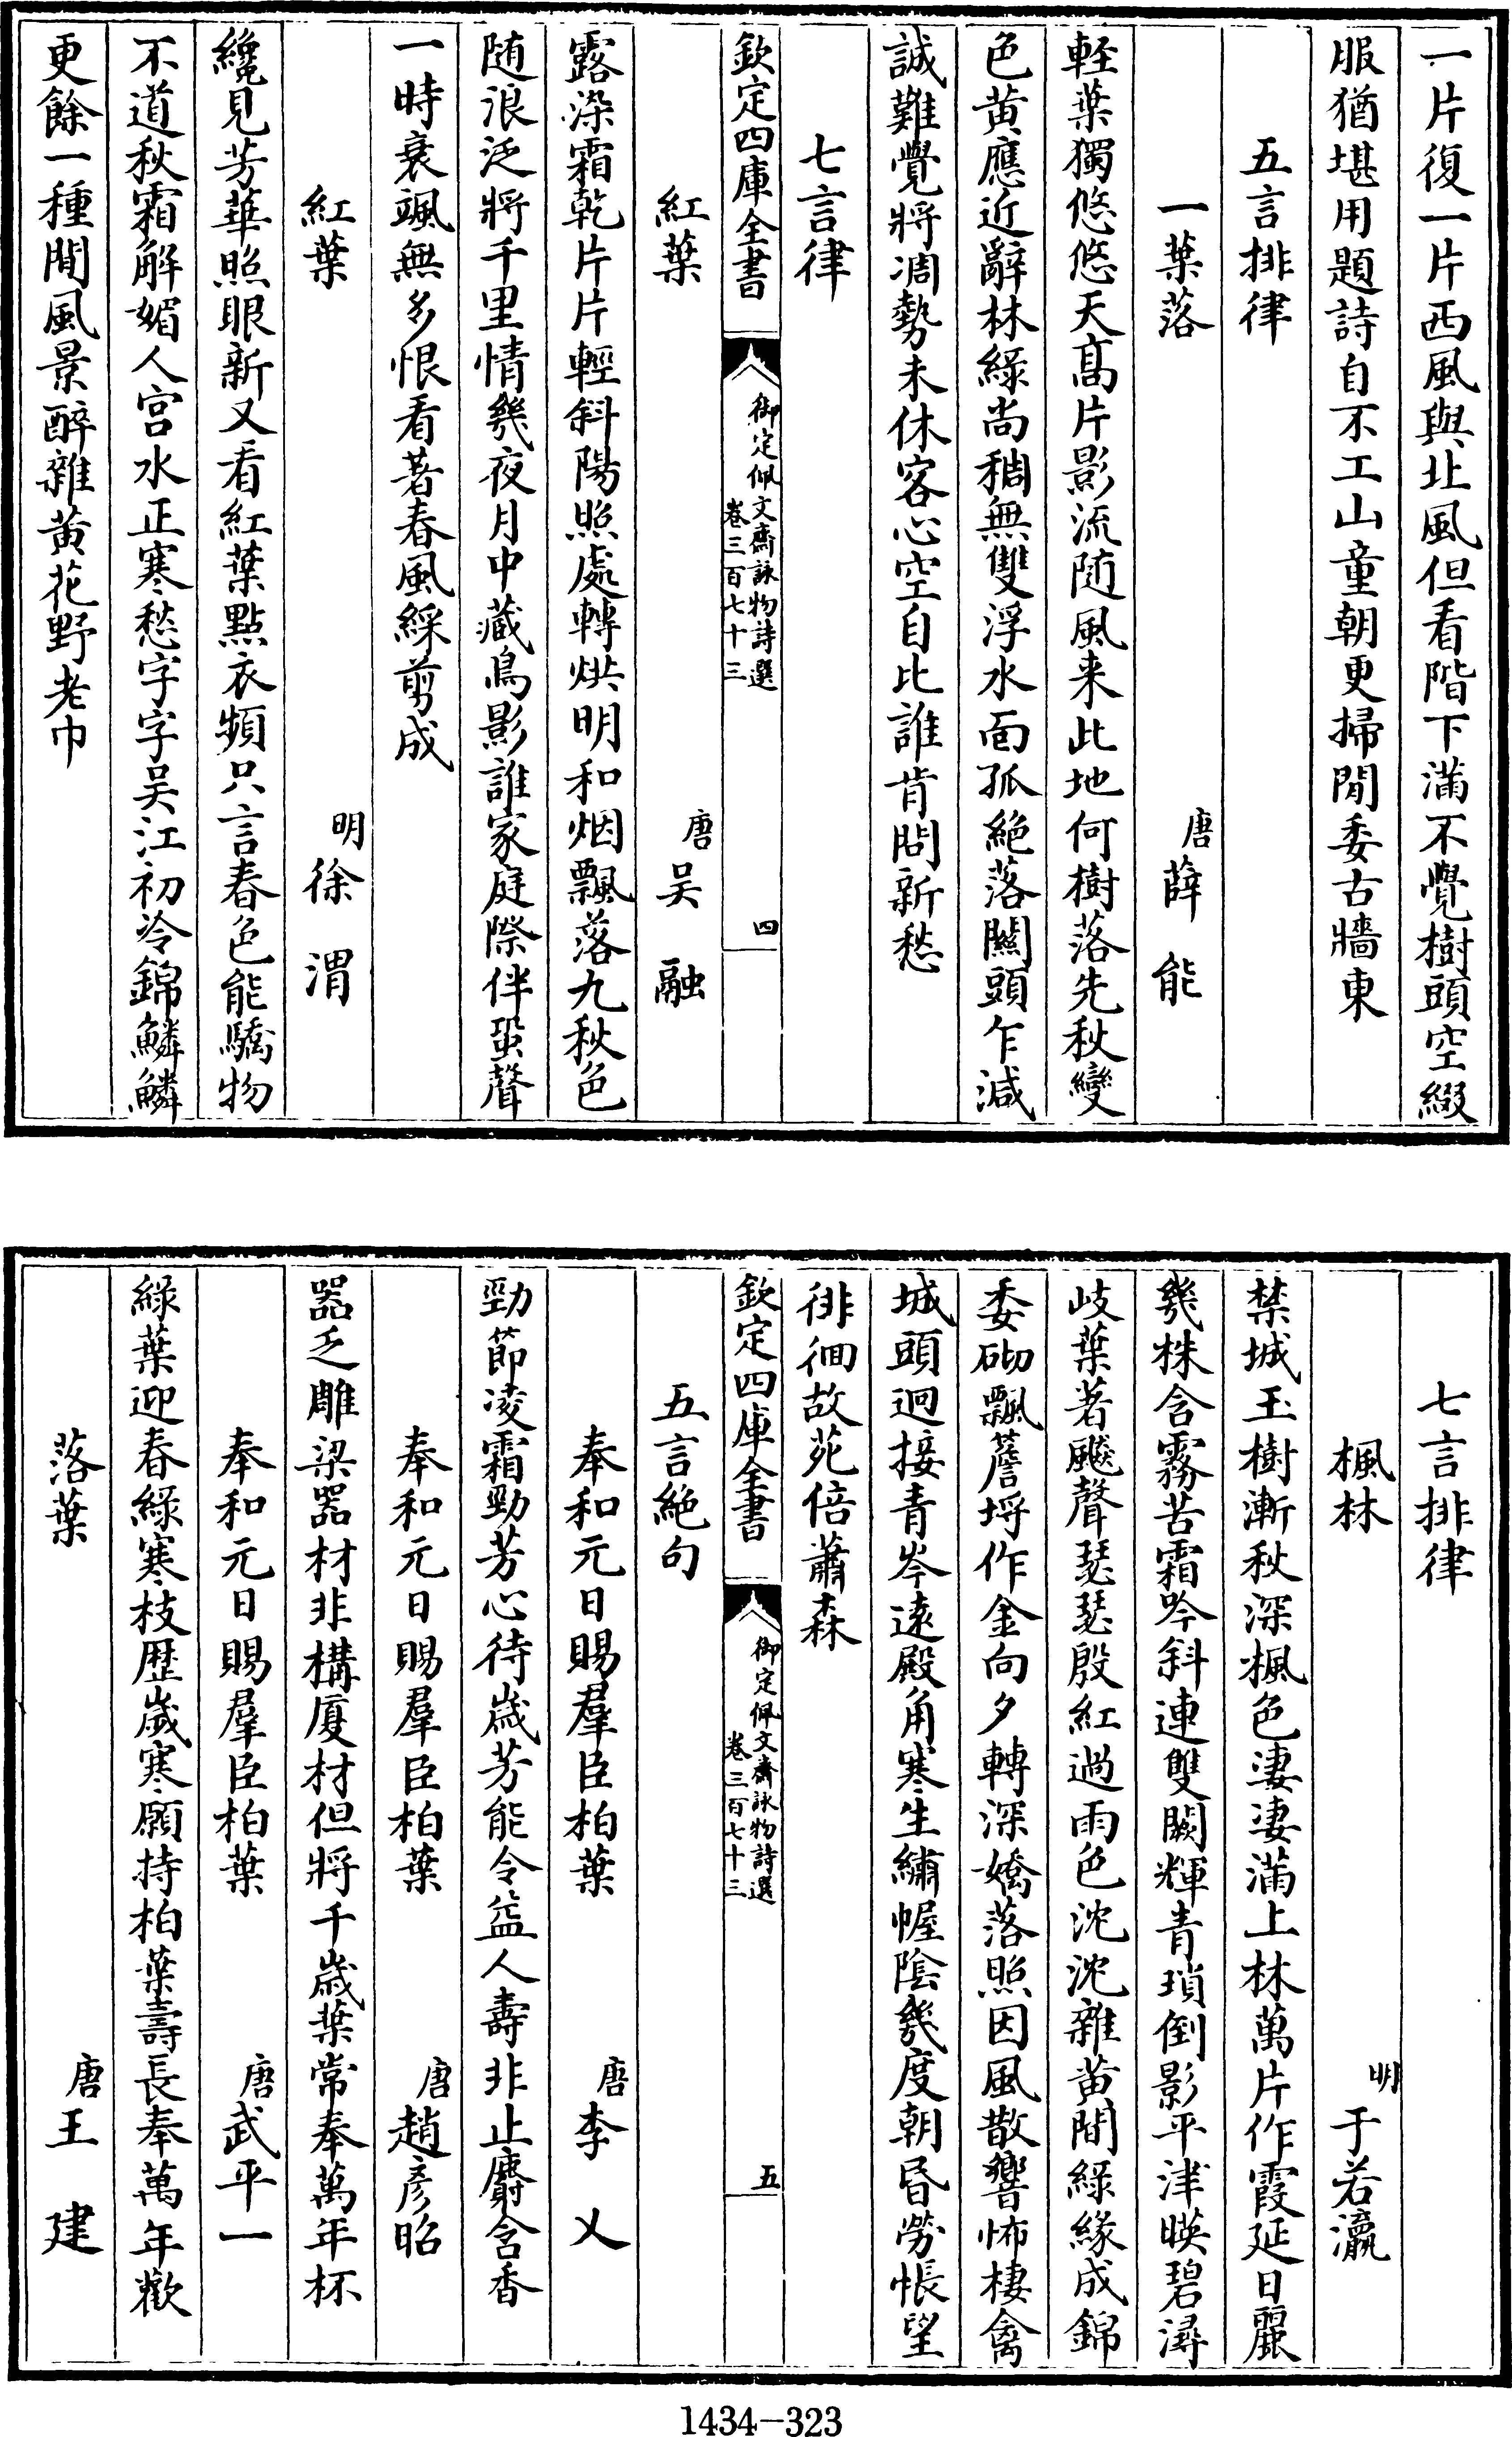 一片復一片西風與北風但看階下滿不覺樹頭空綴
服猶堪用題詩自不工山童朝更掃閒委古牆東
五言排律
一葉落　唐薛能
輕葉獨悠悠天髙片影流随風来此地何樹落先秋變
色黄應近辭林綠尚稠無雙浮水面孤絶落闗頭乍減
誠難覺將凋勢未休客心空自比誰肯問新愁
七言律
欽定四庫全書　御定佩文齋詠物詩選　卷三百七十三　四
紅葉　唐吴融
露染霜乾片片輕斜陽照處轉烘明和烟飄落九秋色
随浪泛將千里情幾夜月中藏鳥影誰家庭際伴蛩聲
一時衰颯無多恨看著春風綵剪成
紅葉　明徐渭
纔見芳華照眼新又看紅葉點衣頻只言春色能驕物
不道秋霜解媚人宫水正寒愁字字吴江初冷錦鱗鱗
更餘一種閒風景醉雜黄花野老巾
七言排律
楓林　明于若瀛
禁城玉樹漸秋深楓色凄凄滿上林萬片作霞延日麗
幾株含霧苦霜吟斜連雙闕輝青瑣倒影平津暎碧潯
岐葉著飈聲瑟瑟殷紅過雨色沈沈雜黄間綠緣成錦
委砌飄簷埒作金向夕轉深嬌落照因風散響怖棲禽
城頭迥接青岑逺殿角寒生繡幄陰幾度朝昏勞悵望
徘徊故苑倍蕭森
欽定四庫全書　御定佩文齋詠物詩選　卷三百七十三　五
五言絶句
奉和元日賜羣臣柏葉　唐李乂
勁節凌霜勁芳心待歳芳能令益人壽非止麝含香
奉和元日賜羣臣柏葉　唐趙彦昭
器乏雕梁器材非構厦材但將千歳葉常奉萬年杯
奉和元日賜羣臣柏葉　唐武平一
綠葉迎春綠寒枝歴歲寒願持柏葉壽長奉萬年歡
落葉　唐王建
1434-323